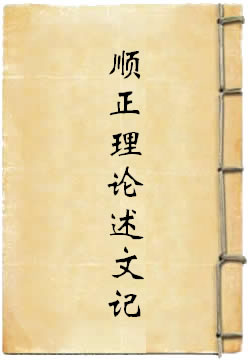 顺正理论述文记